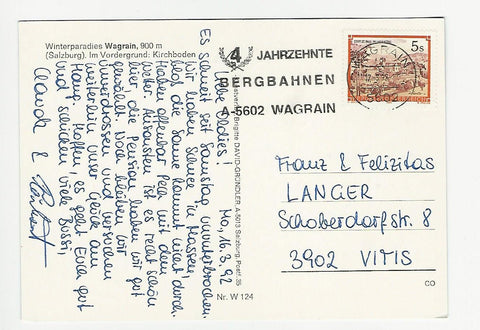 Winterparadies Wagrain, 900 m
(Salzburg). Im Vordergrund: Kirchboden
4 JAHRZEHNTE
BERGBAHNEN
A-5602 WAGRAIN
WAGRAIN
5602
5s
Mo, 16.3.92
Liebe Oldies!
Es schneit seit Samstag ununterbrochen,
wir haben Schnee in Massen,
bloß die Sonne kommt nicht durch.
Haben offenbar Pech mit dem
Wetter. Ansonsten ist es recht schön
hier, die Pension haben wir gut
gewählt. Noch bleiben wir
unverdrossen und versuchen
weiterhin unser Glück am
Hang. Hoffen, es geht Euch gut
und schicken viele Bussi,
Claudia &
Brigitte DAVID-GRÜNDLER, A-5013 Salzburg, Postf. 35
Nr. W 124
Franz & Felizitas
LANGER
Schoberdorfstr. 8
3902 VITIS
CO